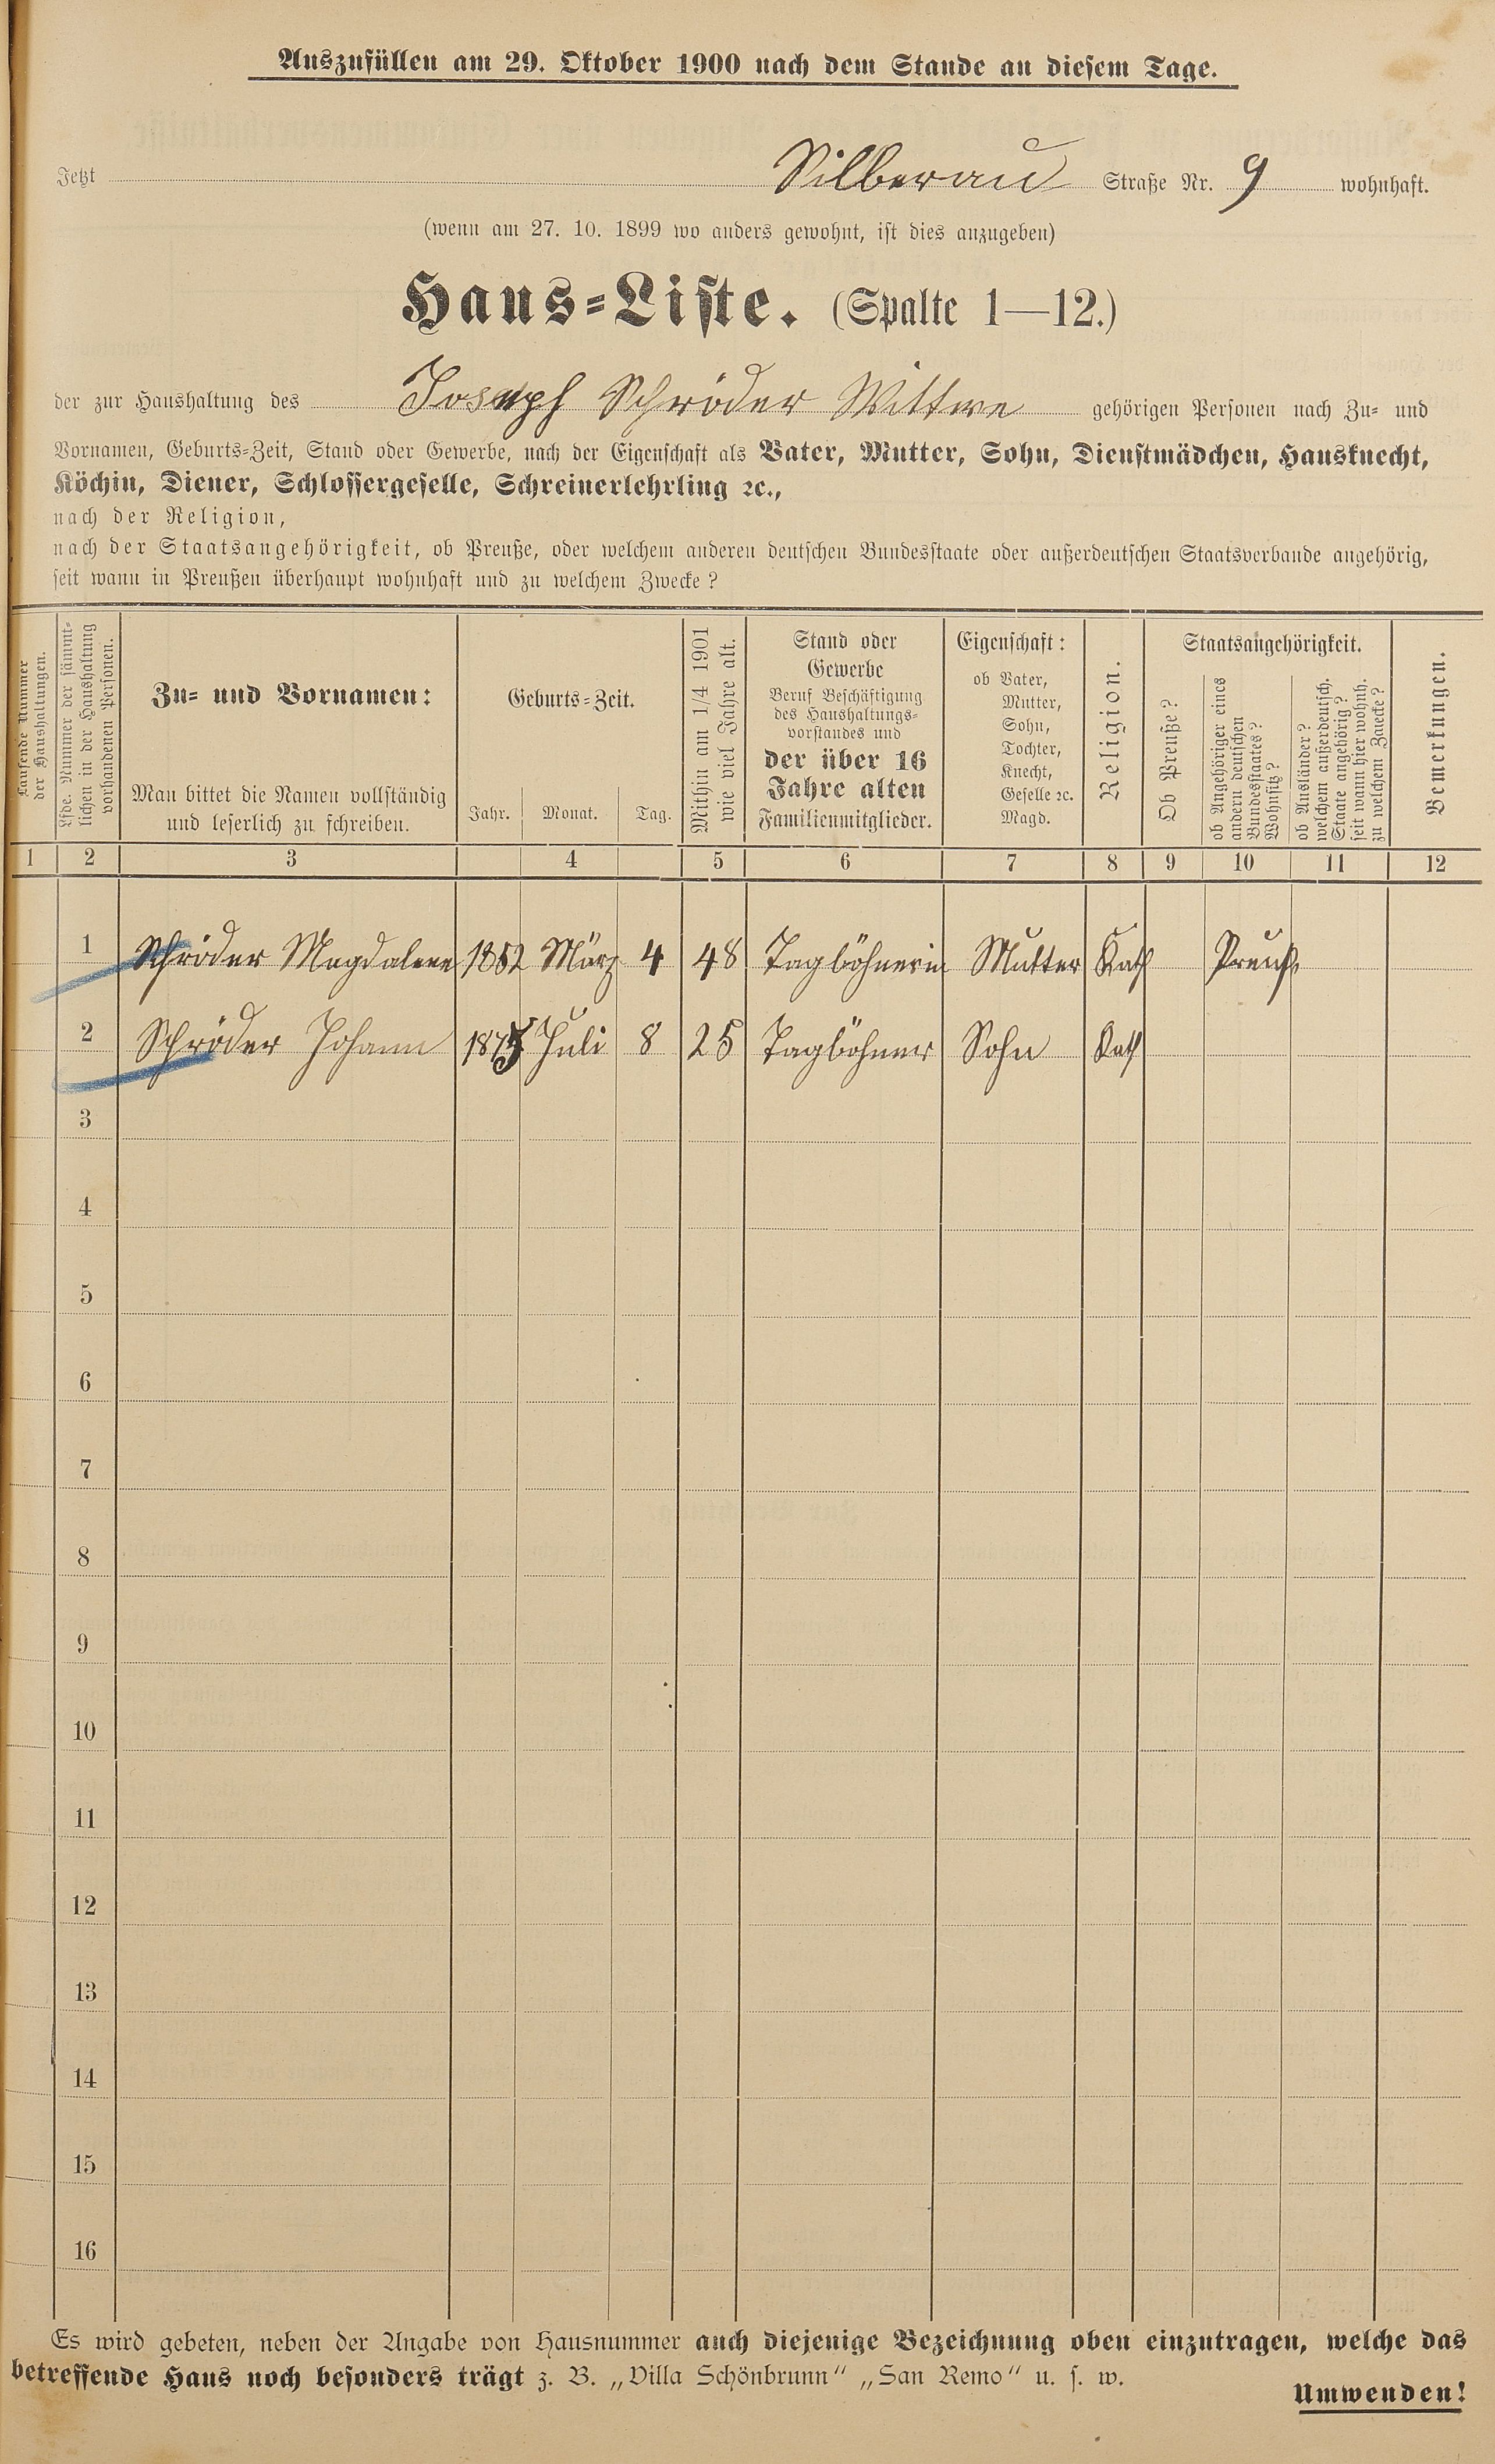 Auszufüllen am 29. Oktober 1900 nach dem Stande an diesem Tage.
Jetzt Silberau Straße Nr. 9 wohnhaft.
(wenn am 27. 10. 1899 wo anders gewohnt, ist dies anzugeben)
Haus-Liste. (Spalte 1—12.)
der zur Haushaltung des Joseph Schröder Wittwe gehörigen Personen nach Zu- und
Vornamen, Geburts-Zeit, Stand oder Gewerbe, nach der Eigenschaft als Vater, Mutter, Sohn, Dienstmädchen, Hausknecht,
Köchin, Diener, Schlossergeselle, Schreinerlehrling ꝛc.,
nach der Religion,
nach der Staatsangehörigkeit, ob Preuße, oder welchem anderen deutschen Bundesstaate oder außerdeutschen Staatsverbande angehörig,
seit wann in Preußen überhaupt wohnhaft und zu welchem Zwecke?
Laufende Nummer
der Haushaltungen.
Lfde. Nummer der sämmt-
lichen in der Haushaltung
vorhandenen Personen.
Zu- und Vornamen:
Man bittet die Namen vollständig
und leserlich zu schreiben.
Geburts-Zeit.
Jahr. Monat. Tag.
Mithin am 1/4 1901
wie viel Jahre alt.
Stand oder
Gewerbe
Beruf Beschäftigung
des Haushaltungs-
vorstandes und
der über 16
Jahre alten
Familienmitglieder.
Eigenschaft:
ob Vater,
Mutter,
Sohn,
Tochter,
Knecht,
Geselle ꝛc.
Magd.
Religion.
Staatsangehörigkeit.
Ob Preuße?
ob Angehöriger eines
andern deutschen
Bundesstaates?
Wohnsitz?
ob Ausländer?
welchem außerdeutsch.
Staate angehörig?
seit wann hier wohnh.
zu welchem Zwecke?
Bemerkungen.
1 2 3 4 5 6 7 8 9 10 11 12
1 Schröder Magdalene 1852 März 4 48 Taglöhnerin Mutter Kath Preuß.
2 Schröder Johann 1875 Juli 8 25 Taglöhner Sohn Kath
3
4
5
6
7
8
9
10
11
12
13
14
15
16
Es wird gebeten, neben der Angabe von Hausnummer auch diejenige Bezeichnung oben einzutragen, welche das
betreffende Haus noch besonders trägt z. B. „Villa Schönbrunn“ „San Remo“ u. s. w.
Umwenden!